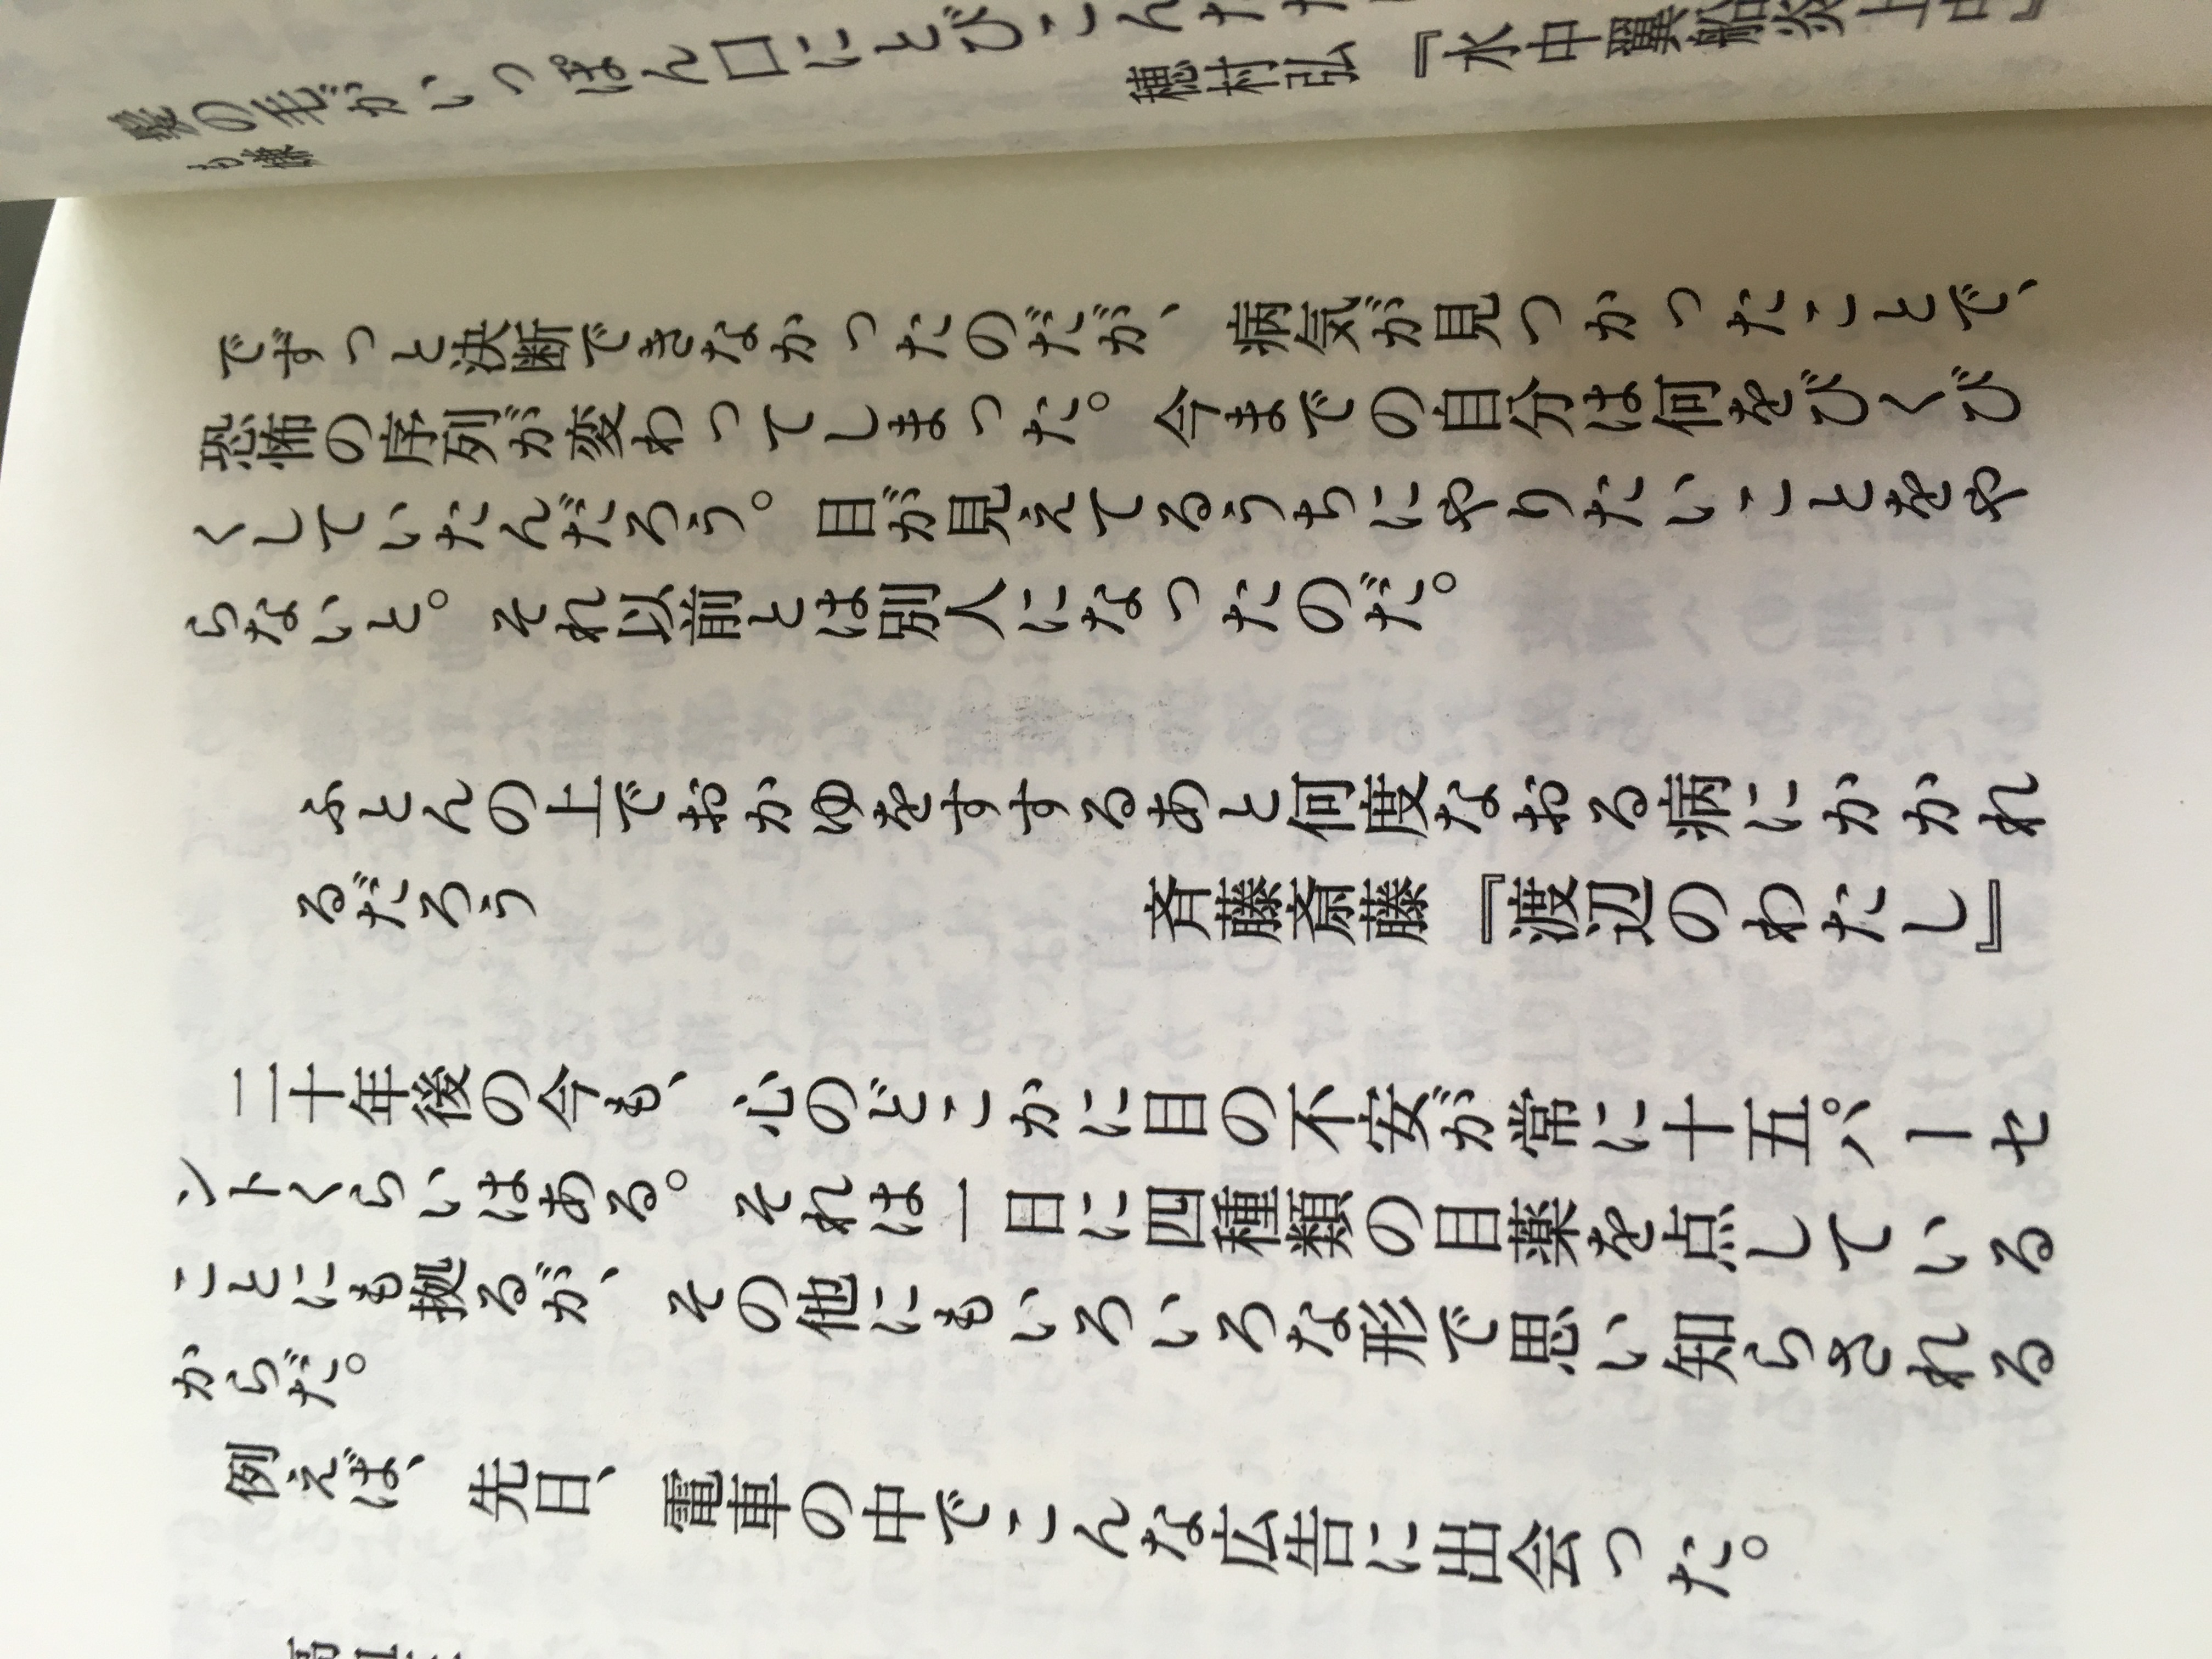 穂村弘『水中翼船炎上中』
でずっと決断できなかったのだが、病気が見つかったことで、
恐怖の序列が変わってしまった。今までの自分は何をびくび
くしていたんだろう。目が見えてるうちにやりたいことをや
らないと。それ以前とは別人になったのだ。
ふとんの上でおかゆをすするあと何度なおる病にかかれ
るだろう
斉藤斎藤『渡辺のわたし』
二十年後の今も、心のどこかに目の不安が常に十五パーセ
ントくらいはある。それは一日に四種類の目薬を点している
ことにも拠るが、その他にもいろいろな形で思い知らされる
からだ。
例えば、先日、電車の中でこんな広告に出会った。